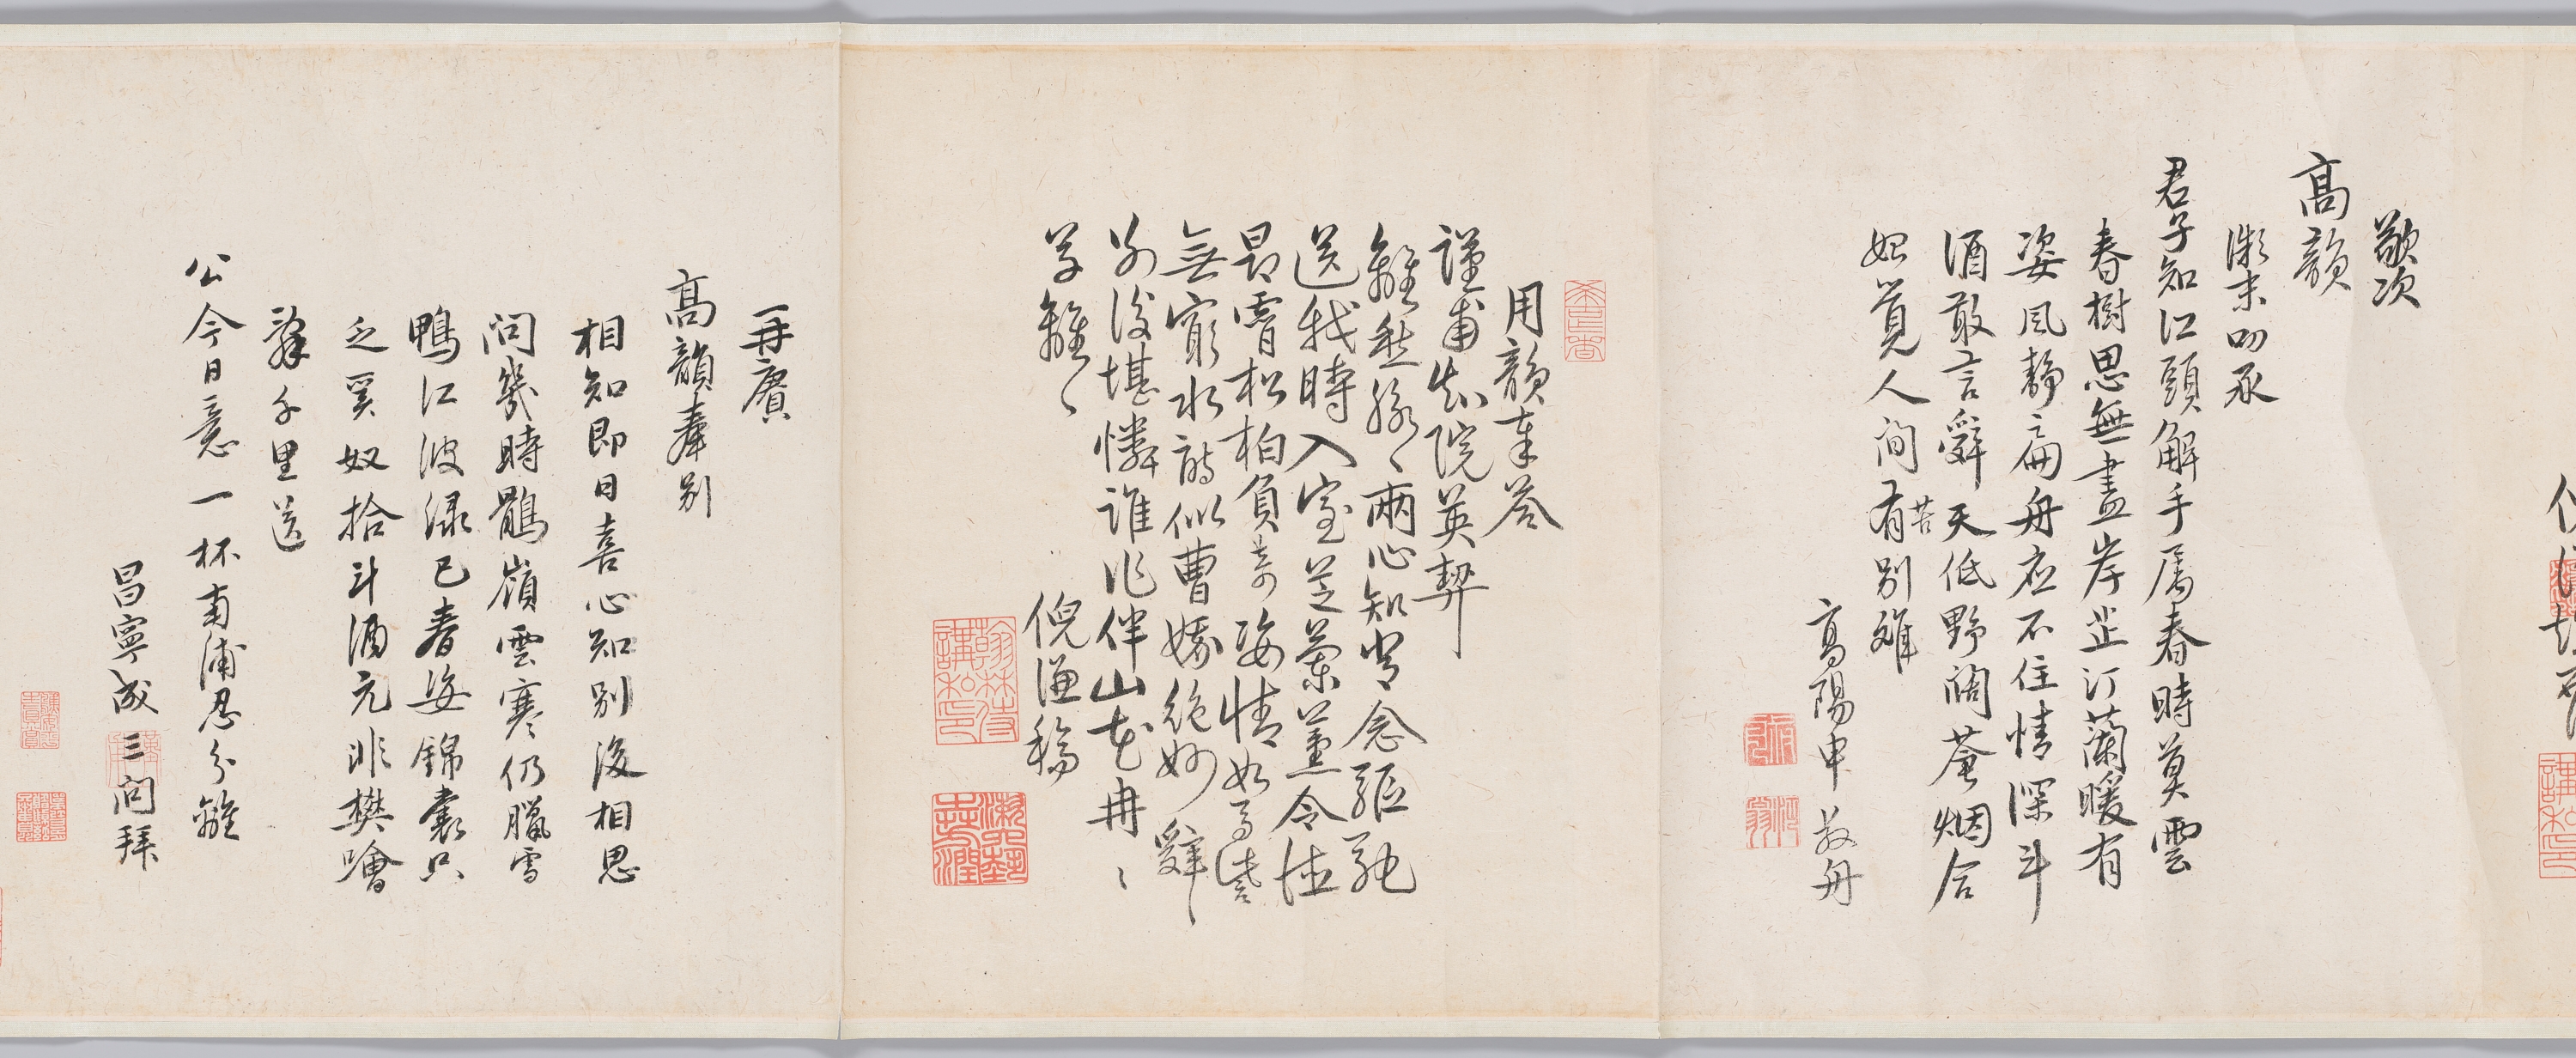 敬次
高韻
微末叨承
君子知江頭解手屬春時莫雲
春樹思無盡岸芷汀蘭暖有
姿風靜扁舟應不住情深斗
酒敢言辭天低野闊蒼烟合
始覺人間有苦別離
高陽申叔舟
用韻奉答
謹甫知院英契
離愁脉〻兩心知常念驅馳
送我時入室芝蘭薰令德
昂霄松柏負奇姿情如高誼
無窮水詩似曹娥絶妙辭
別後堪憐誰作伴山花冉〻
草離〻
倪謙稿
翰林侍講私印
再賡
高韻奉別
相知即日喜心知別後相思
問幾時鶻嶺雲寒仍臘雪
鴨江波綠已春姿錦囊只
乏奚奴拾斗酒元非樊噲
辭千里送
公今日意一杯南浦忍分離
昌寧成三問拜